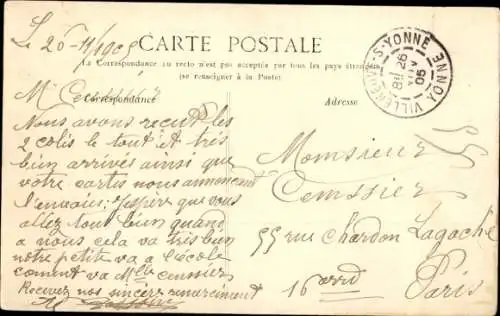 Le 26-11/1905
CARTE POSTALE
La Correspondance au recto n'est pas acceptée par tous les pays étrangers
(se renseigner à la Poste)
VILLENEUVE-S-YONNE YONNE
8H 26
05
Correspondance
Adresse
Nous avons recut les
2 colis le tout et très
bien arrivés ainsi que
votre cartes nous annoncant
l'envoi; j'espère que vous
allez tout bien quand
a nous cela va très bien
notre petite va a l'école
coment va Mlle
Recevez nos sincère remerciment
Monsieur
55 rue Chardon Lagache
16 arrd Paris